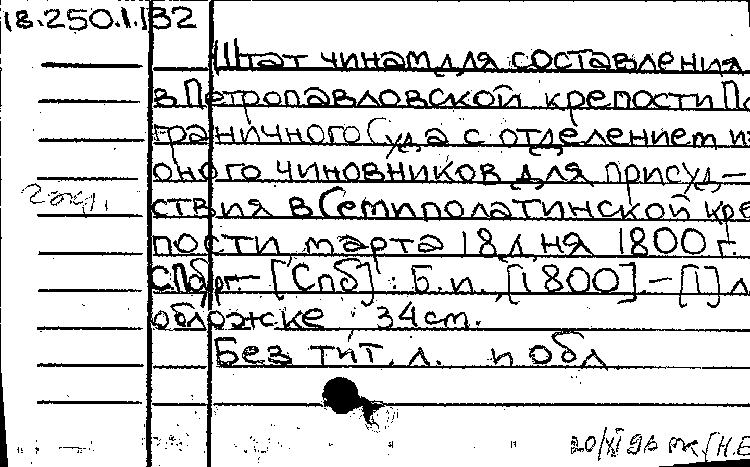 18.250.1.132
Штат чинам для составления
в Петропавловской крепости По
граничного Суда с отделением из
оного чиновников для присуд-
2 экз.
ствия в Семиполатинской кре
пости марта 18 дня 1800 г.
СПбург.- [Спб]: Б.и., [1800].- [1] л
обложке ; 34 см.
Без тит. л. и обл
20/XI 96